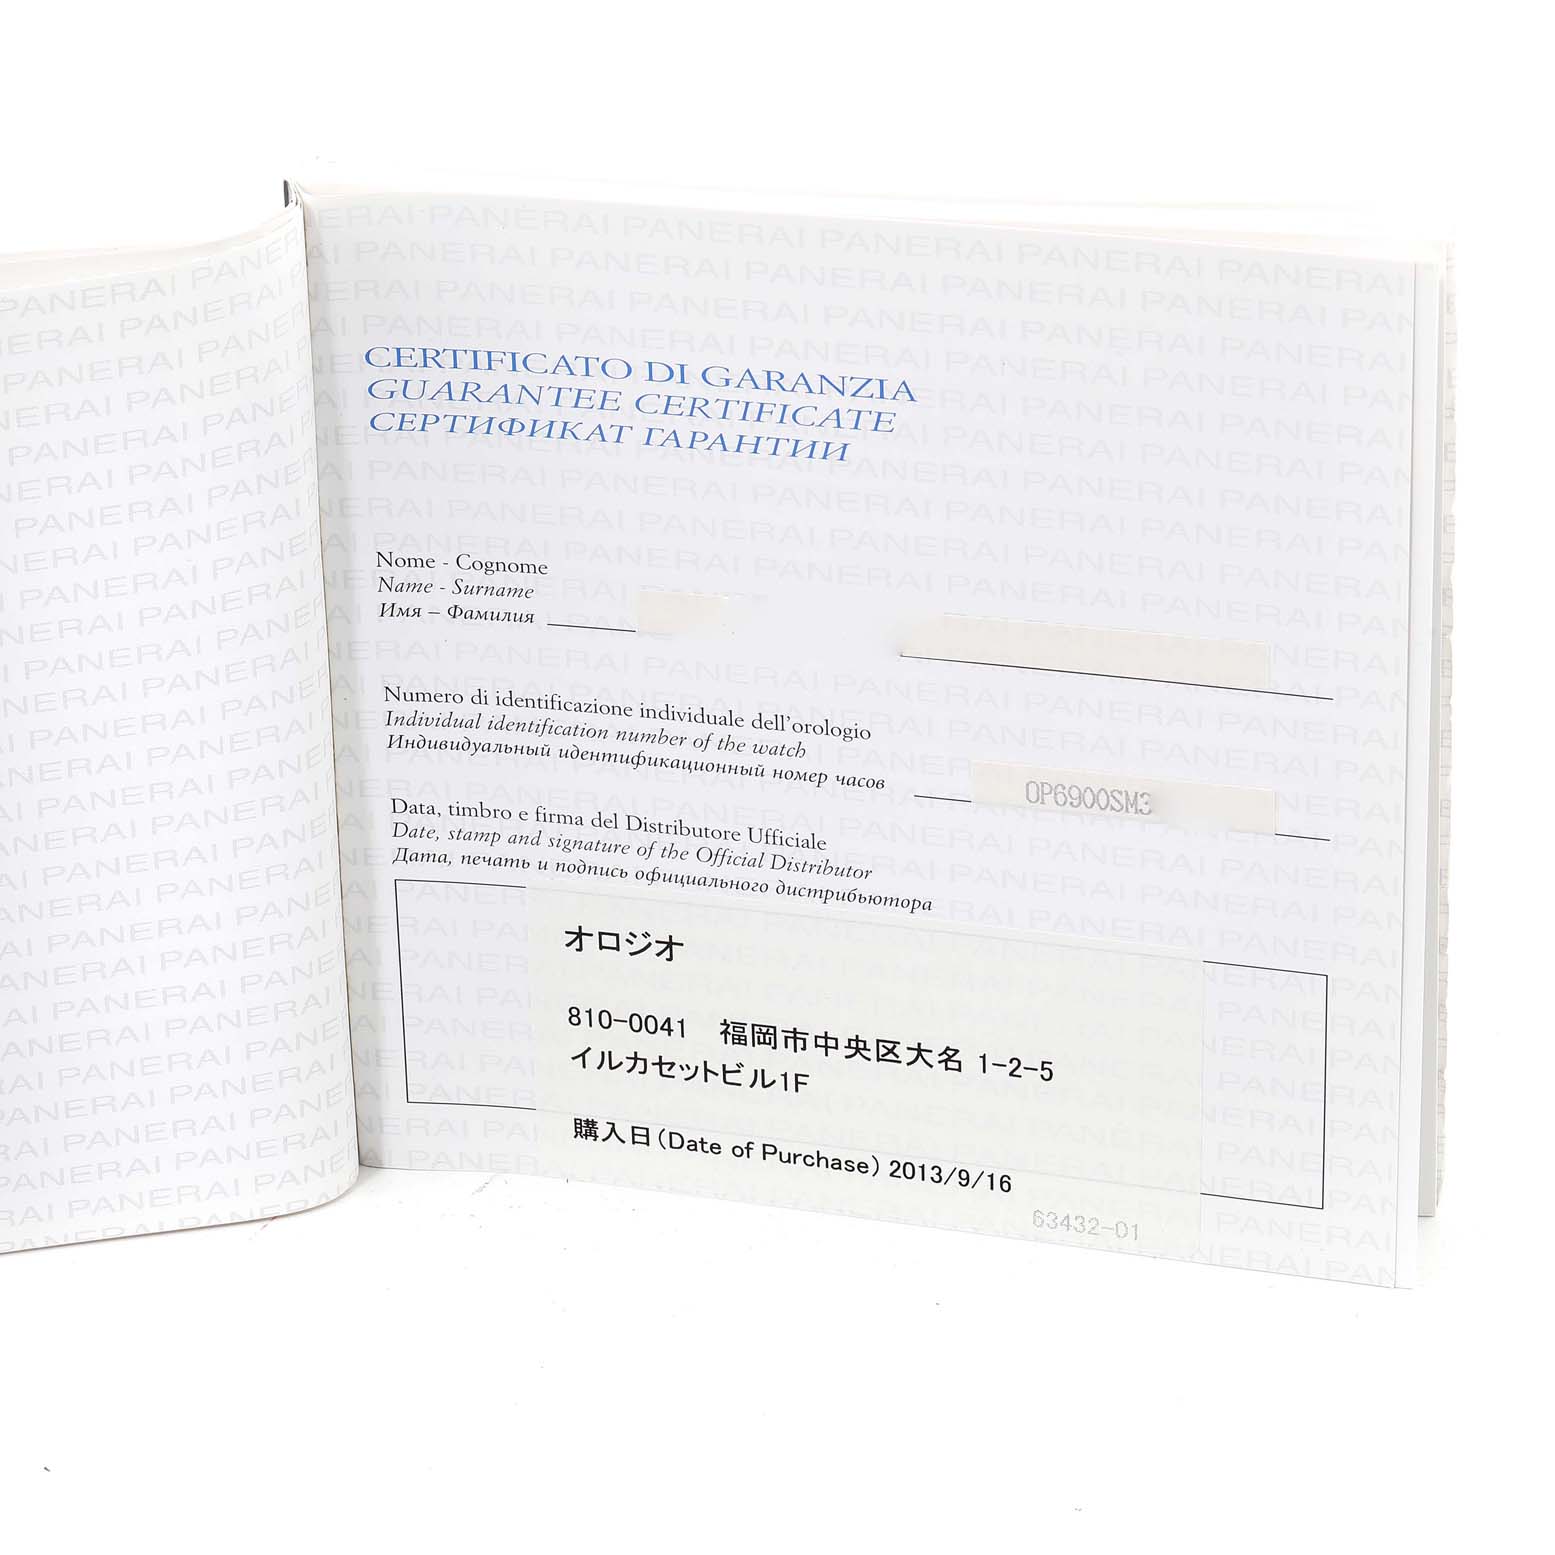 CERTIFICATO DI GARANZIA
GUARANTEE CERTIFICATE
СЕРТИФИКАТ ГАРАНТИИ
Nome - Cognome
Name - Surname
Имя – Фамилия
Numero di identificazione individuale dell'orologio
Individual identification number of the watch
Индивидуальный идентификационный номер часов
OP6900SM3
Data, timbro e firma del Distributore Ufficiale
Date, stamp and signature of the Official Distributor
Дата, печать и подпись официального дистрибьютора
オロジオ
810-0041 福岡市中央区大名 1-2-5
イルカセットビル1F
購入日(Date of Purchase) 2013/9/16
63432-01